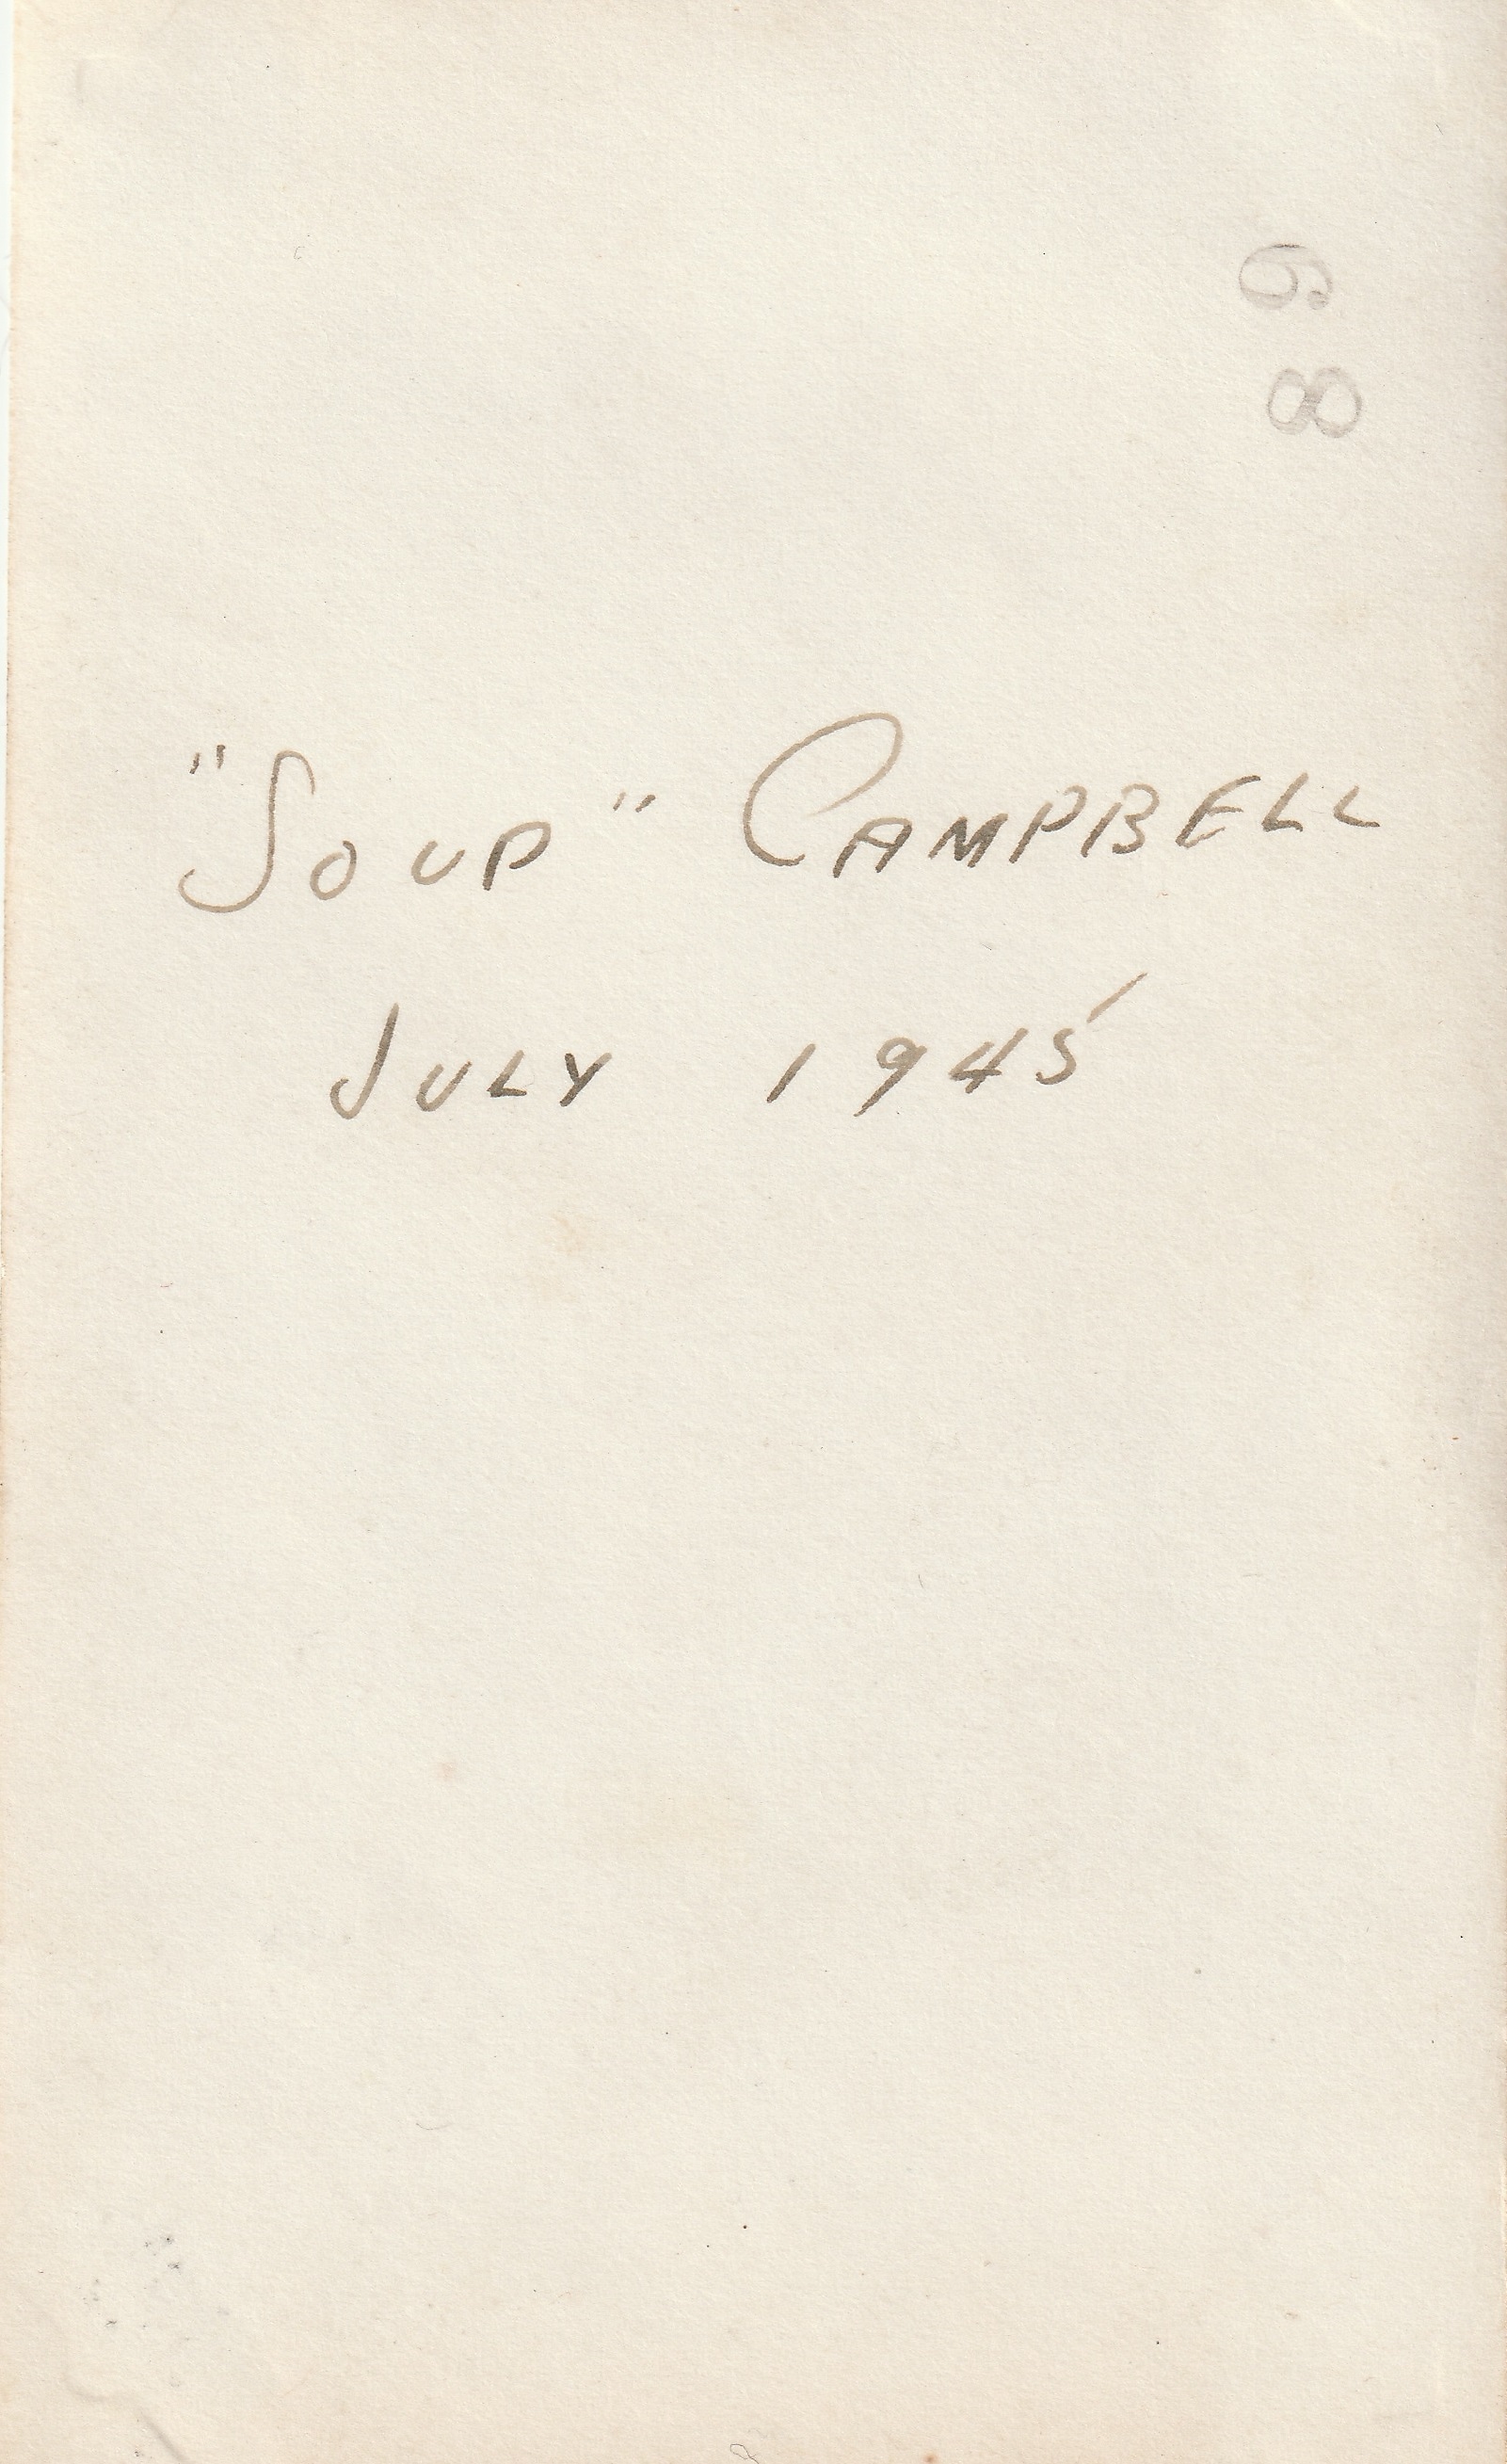 89
"SOUP" CAMPBELL
JULY 1945